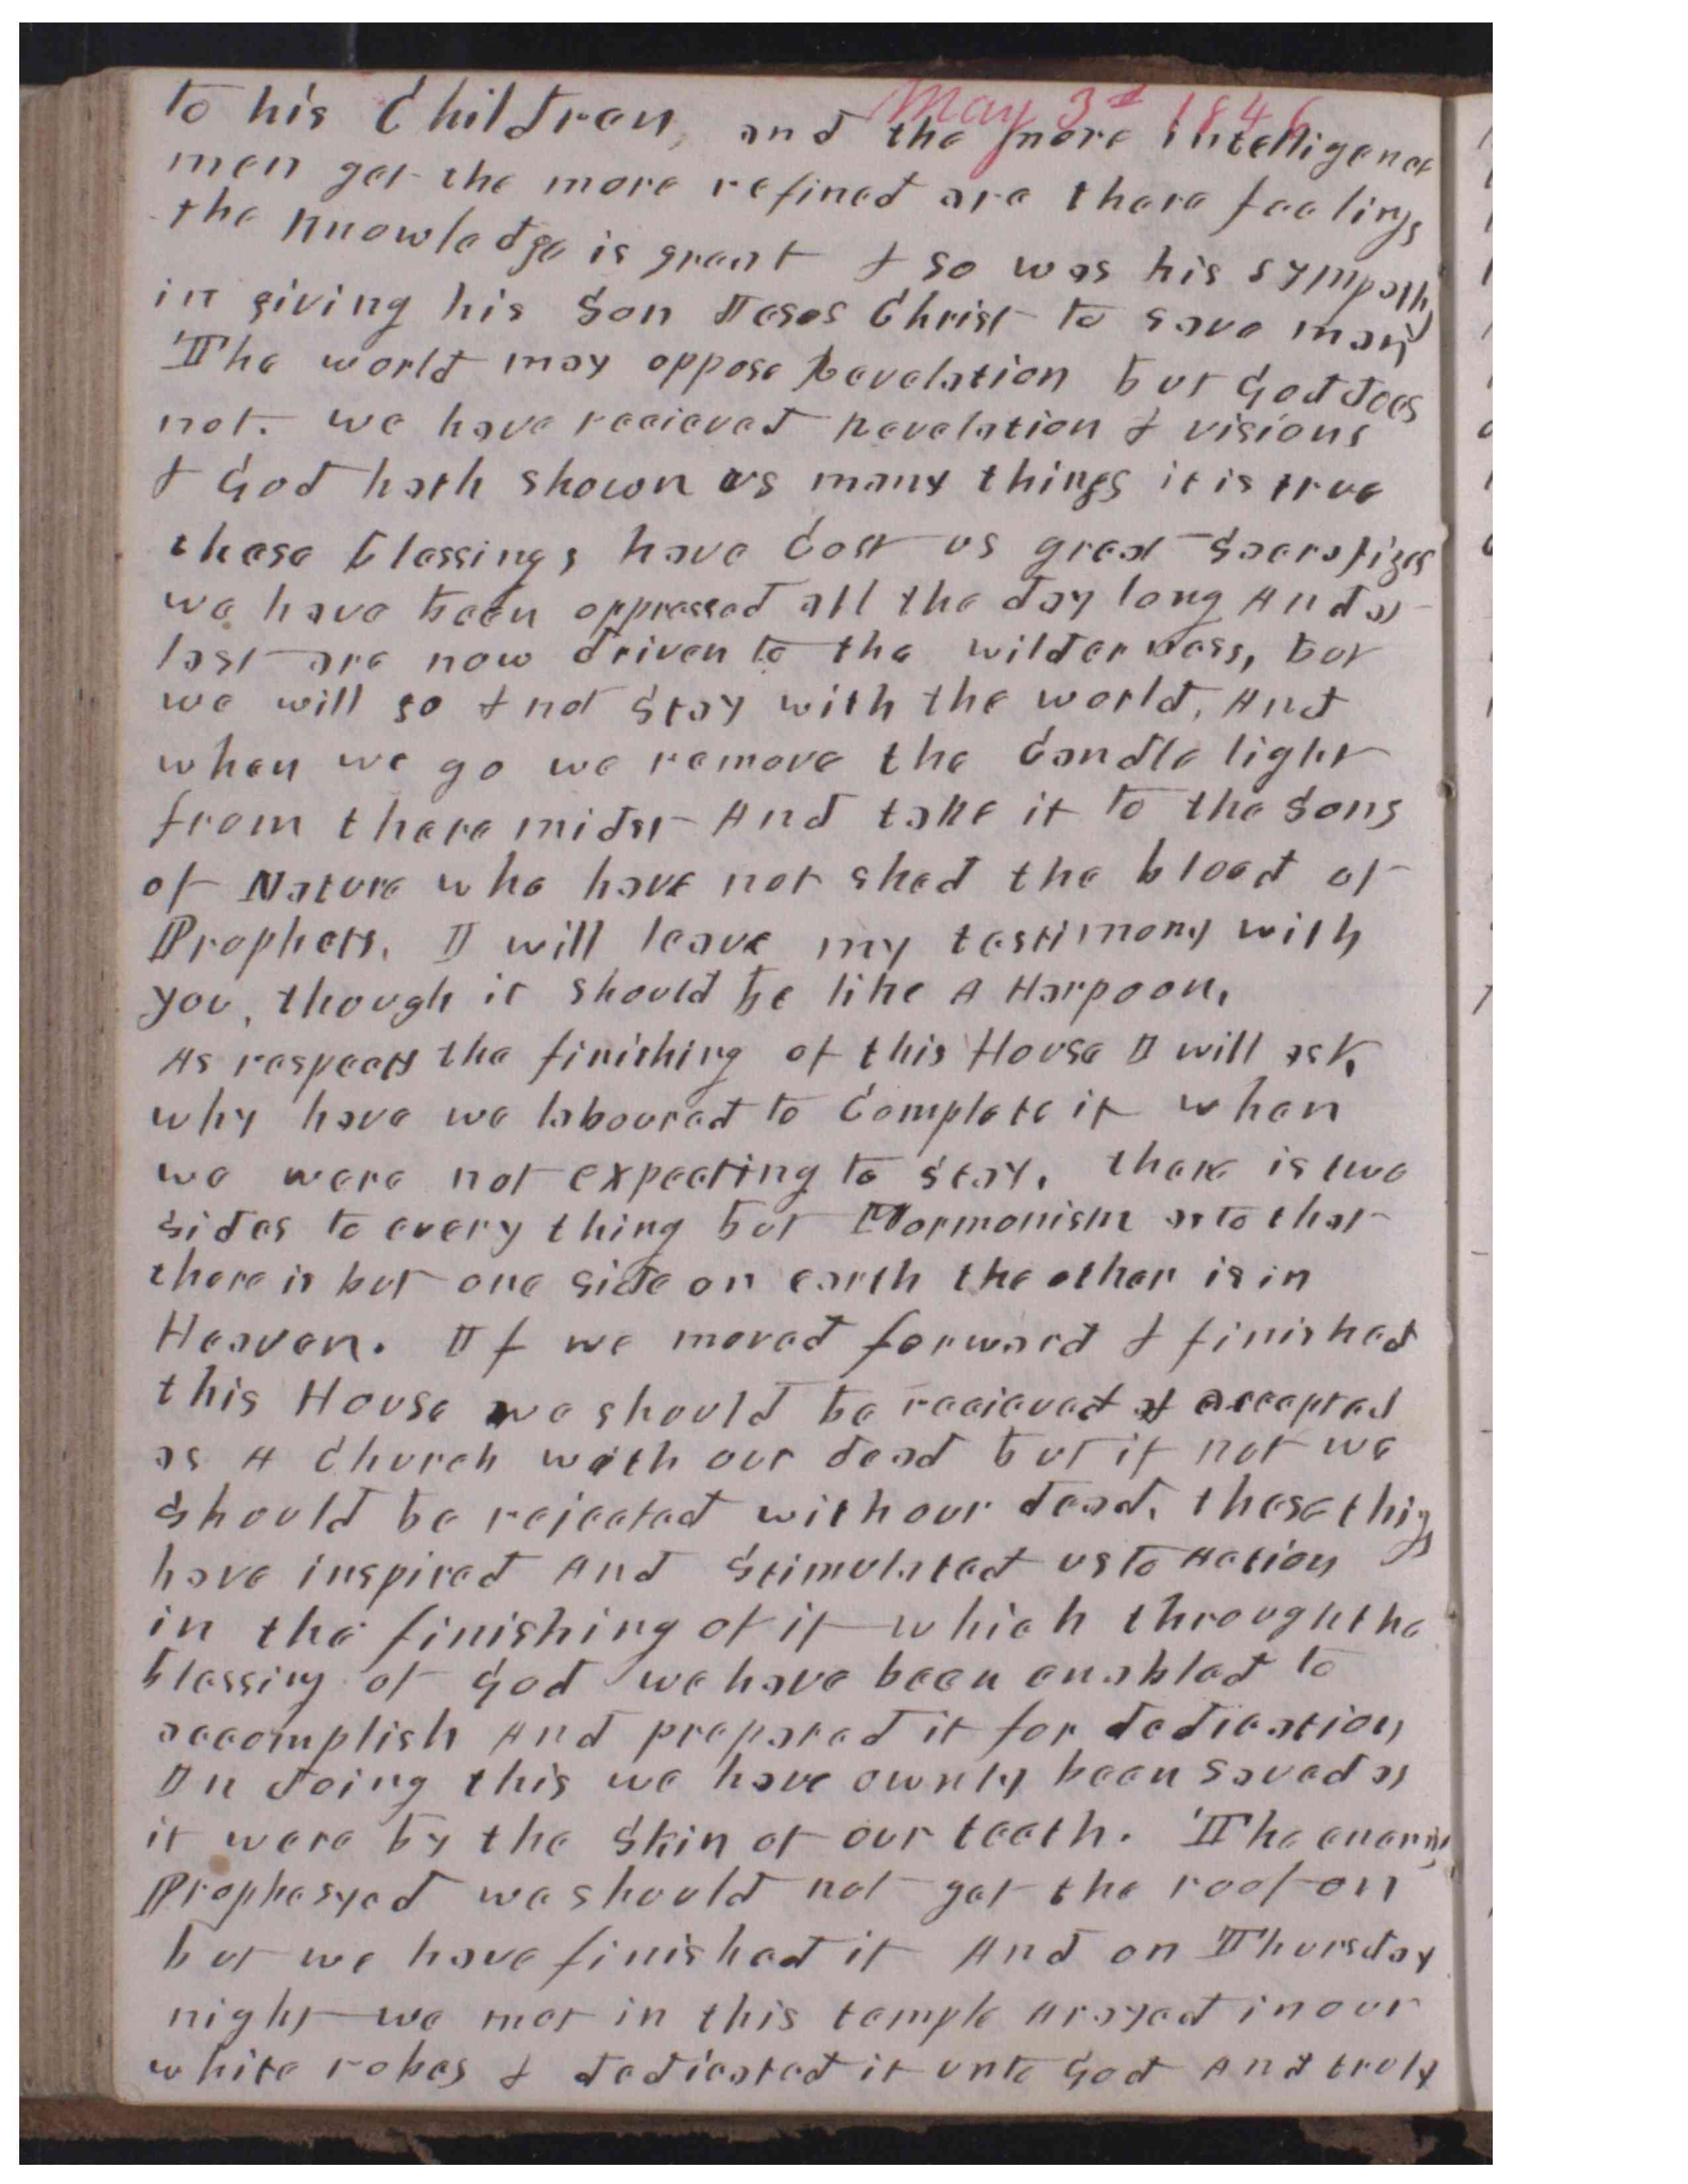 May 3d 1846
to his Children, and the more intelligence
men get the more refined are there feelings
the knowledge is great & so was his sympathy
in giving his Son Jeses Christ to save man
The world may oppose Revelation but God does
not. we have recieved Revelation & visions
& God hath shown us many things it is true
these blessings have Cost us great Sacrafizes
we have been oppressed all the day long And at
last are now driven to the wilderness, but
we will go & not stay with the world, And
when we go we remove the Candle light
from there midst And take it to the Sons
of Nature who have not shed the blood of
Prophets. I will leave my testimony with
you, though it should be like A Harpoon,
As respects the finishing of this House I will ask,
why have we laboured to Complete it when
we were not expecting to stay. there is two
sides to every thing but Mormonism as to that
there is but one side on earth the other is in
Heaven. If we moved forward & finished
this House we should be recieved & accepted
as A Church with our dead but if not we
should be rejected with our dead. these things
have inspired And Stimulated us to Action
in the finishing of it which through the
blessing of God we have been enabled to
accomplish And prepared it for dedication
In doing this we have ownly been saved as
it were by the Skin of our teeth. The enemy
Prophesyed we should not get the roof on
but we have finished it And on Thursday
night we met in this temple Arayed in our
white robes & dedicated it unto God And truly